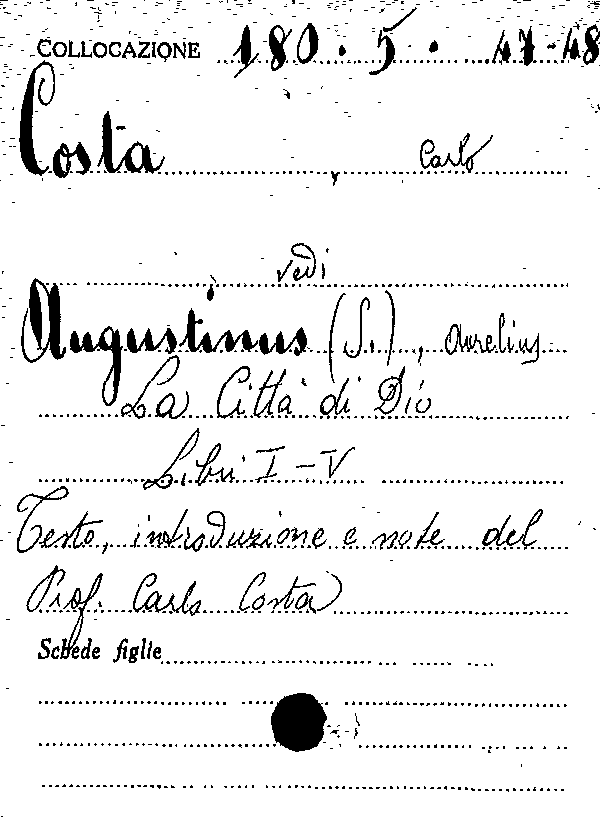 COLLOCAZIONE 180. 5. 47-48
Costa, Carlo
vedi
Augustinus (S.), Aurelius
La Città di Dio
Libri I-V
Testo, introduzione e note del
Prof. Carlo Costa
Schede figlie